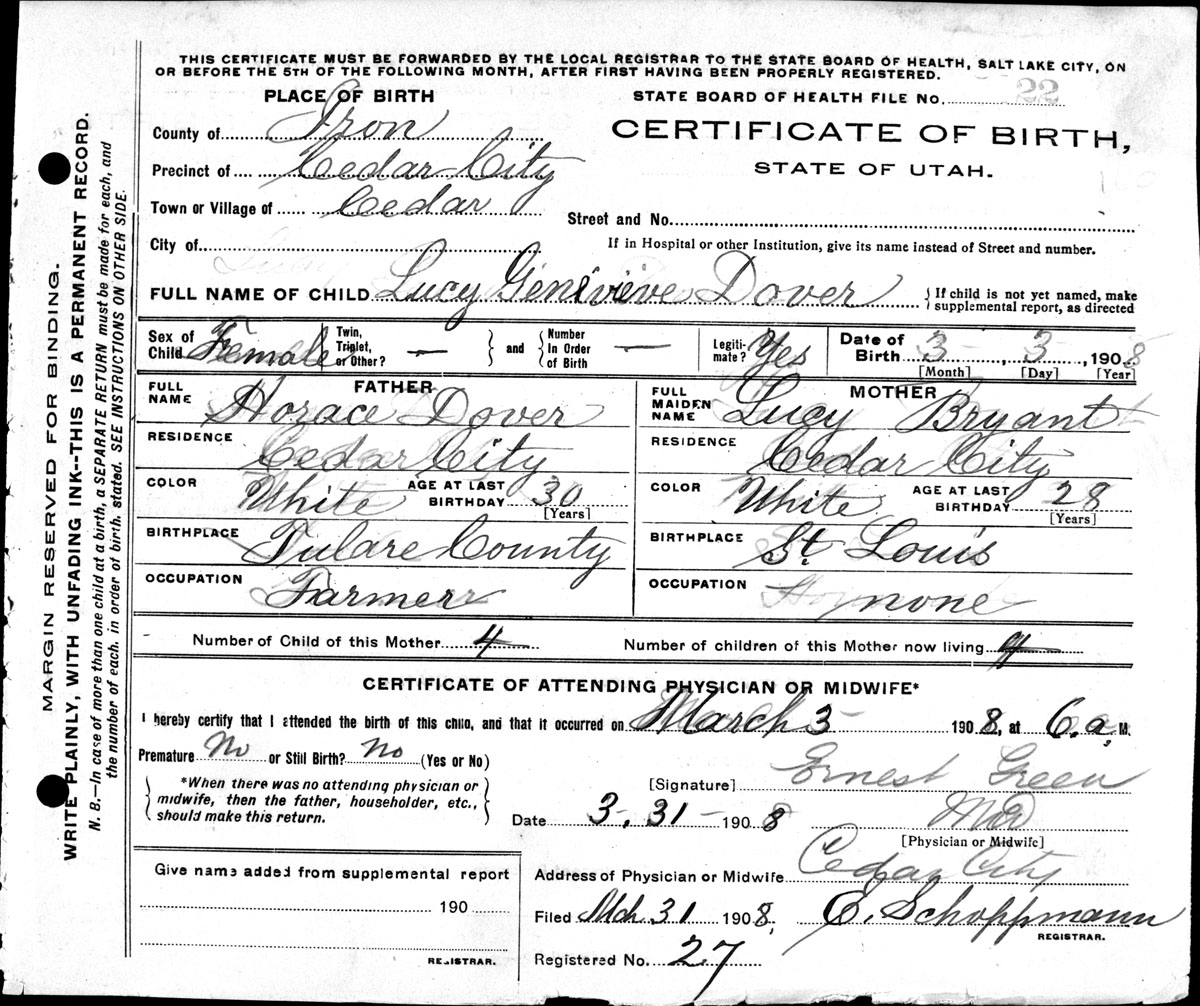 THIS CERTIFICATE MUST BE FORWARDED BY THE LOCAL REGISTRAR TO THE STATE BOARD OF HEALTH, SALT LAKE CITY, ON
OR BEFORE THE 5TH OF THE FOLLOWING MONTH, AFTER FIRST HAVING BEEN PROPERLY REGISTERED.
PLACE OF BIRTH
STATE BOARD OF HEALTH FILE No. 22
County of Iron
CERTIFICATE OF BIRTH,
STATE OF UTAH.
Precinct of Cedar City
Town or Village of Cedar
Street and No.
City of
If in Hospital or other Institution, give its name instead of Street and number.
FULL NAME OF CHILD Lucy Genevieve Dover { If child is not yet named, make
supplemental report, as directed
Sex of Child Female { Twin, Triplet, or Other? — } and { Number In Order of Birth — Legitimate? Yes Date of Birth 3 , 3 , 1908
[Month] [Day] [Year]
FATHER
FULL NAME Horace Dover
RESIDENCE Cedar City
COLOR White AGE AT LAST BIRTHDAY 30
[Years]
BIRTHPLACE Tulare County
OCCUPATION Farmer
MOTHER
FULL MAIDEN NAME Lucy Bryant
RESIDENCE Cedar City
COLOR White AGE AT LAST BIRTHDAY 28
[Years]
BIRTHPLACE St. Louis
OCCUPATION none
Number of Child of this Mother 4 Number of children of this Mother now living 4
CERTIFICATE OF ATTENDING PHYSICIAN OR MIDWIFE*
I hereby certify that I attended the birth of this child, and that it occurred on March 3 1908, at 6.a. M.
Premature No or Still Birth? No (Yes or No)
*When there was no attending physician or
midwife, then the father, householder, etc.,
should make this return.
[Signature] Ernest Green
Date 3.31 - 1908 MD
[Physician or Midwife]
Address of Physician or Midwife Cedar City
Filed Mch 31 1908, E. Schoppmann
REGISTRAR.
Registered No. 27
Give name added from supplemental report
190
REGISTRAR.
MARGIN RESERVED FOR BINDING.
WRITE PLAINLY, WITH UNFADING INK--THIS IS A PERMANENT RECORD.
N. B.—In case of more than one child at a birth, a SEPARATE RETURN must be made for each, and
the number of each, in order of birth, stated. SEE INSTRUCTIONS ON OTHER SIDE.